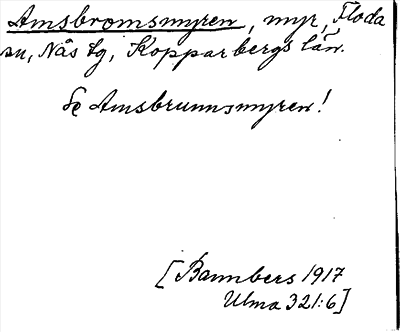 Amsbromsmyren, myr, Floda
sn, Nås tg, Kopparbergs län.
Se Amsbrunnsmyren!
[Bannbers 1917
Ulma 321:6]